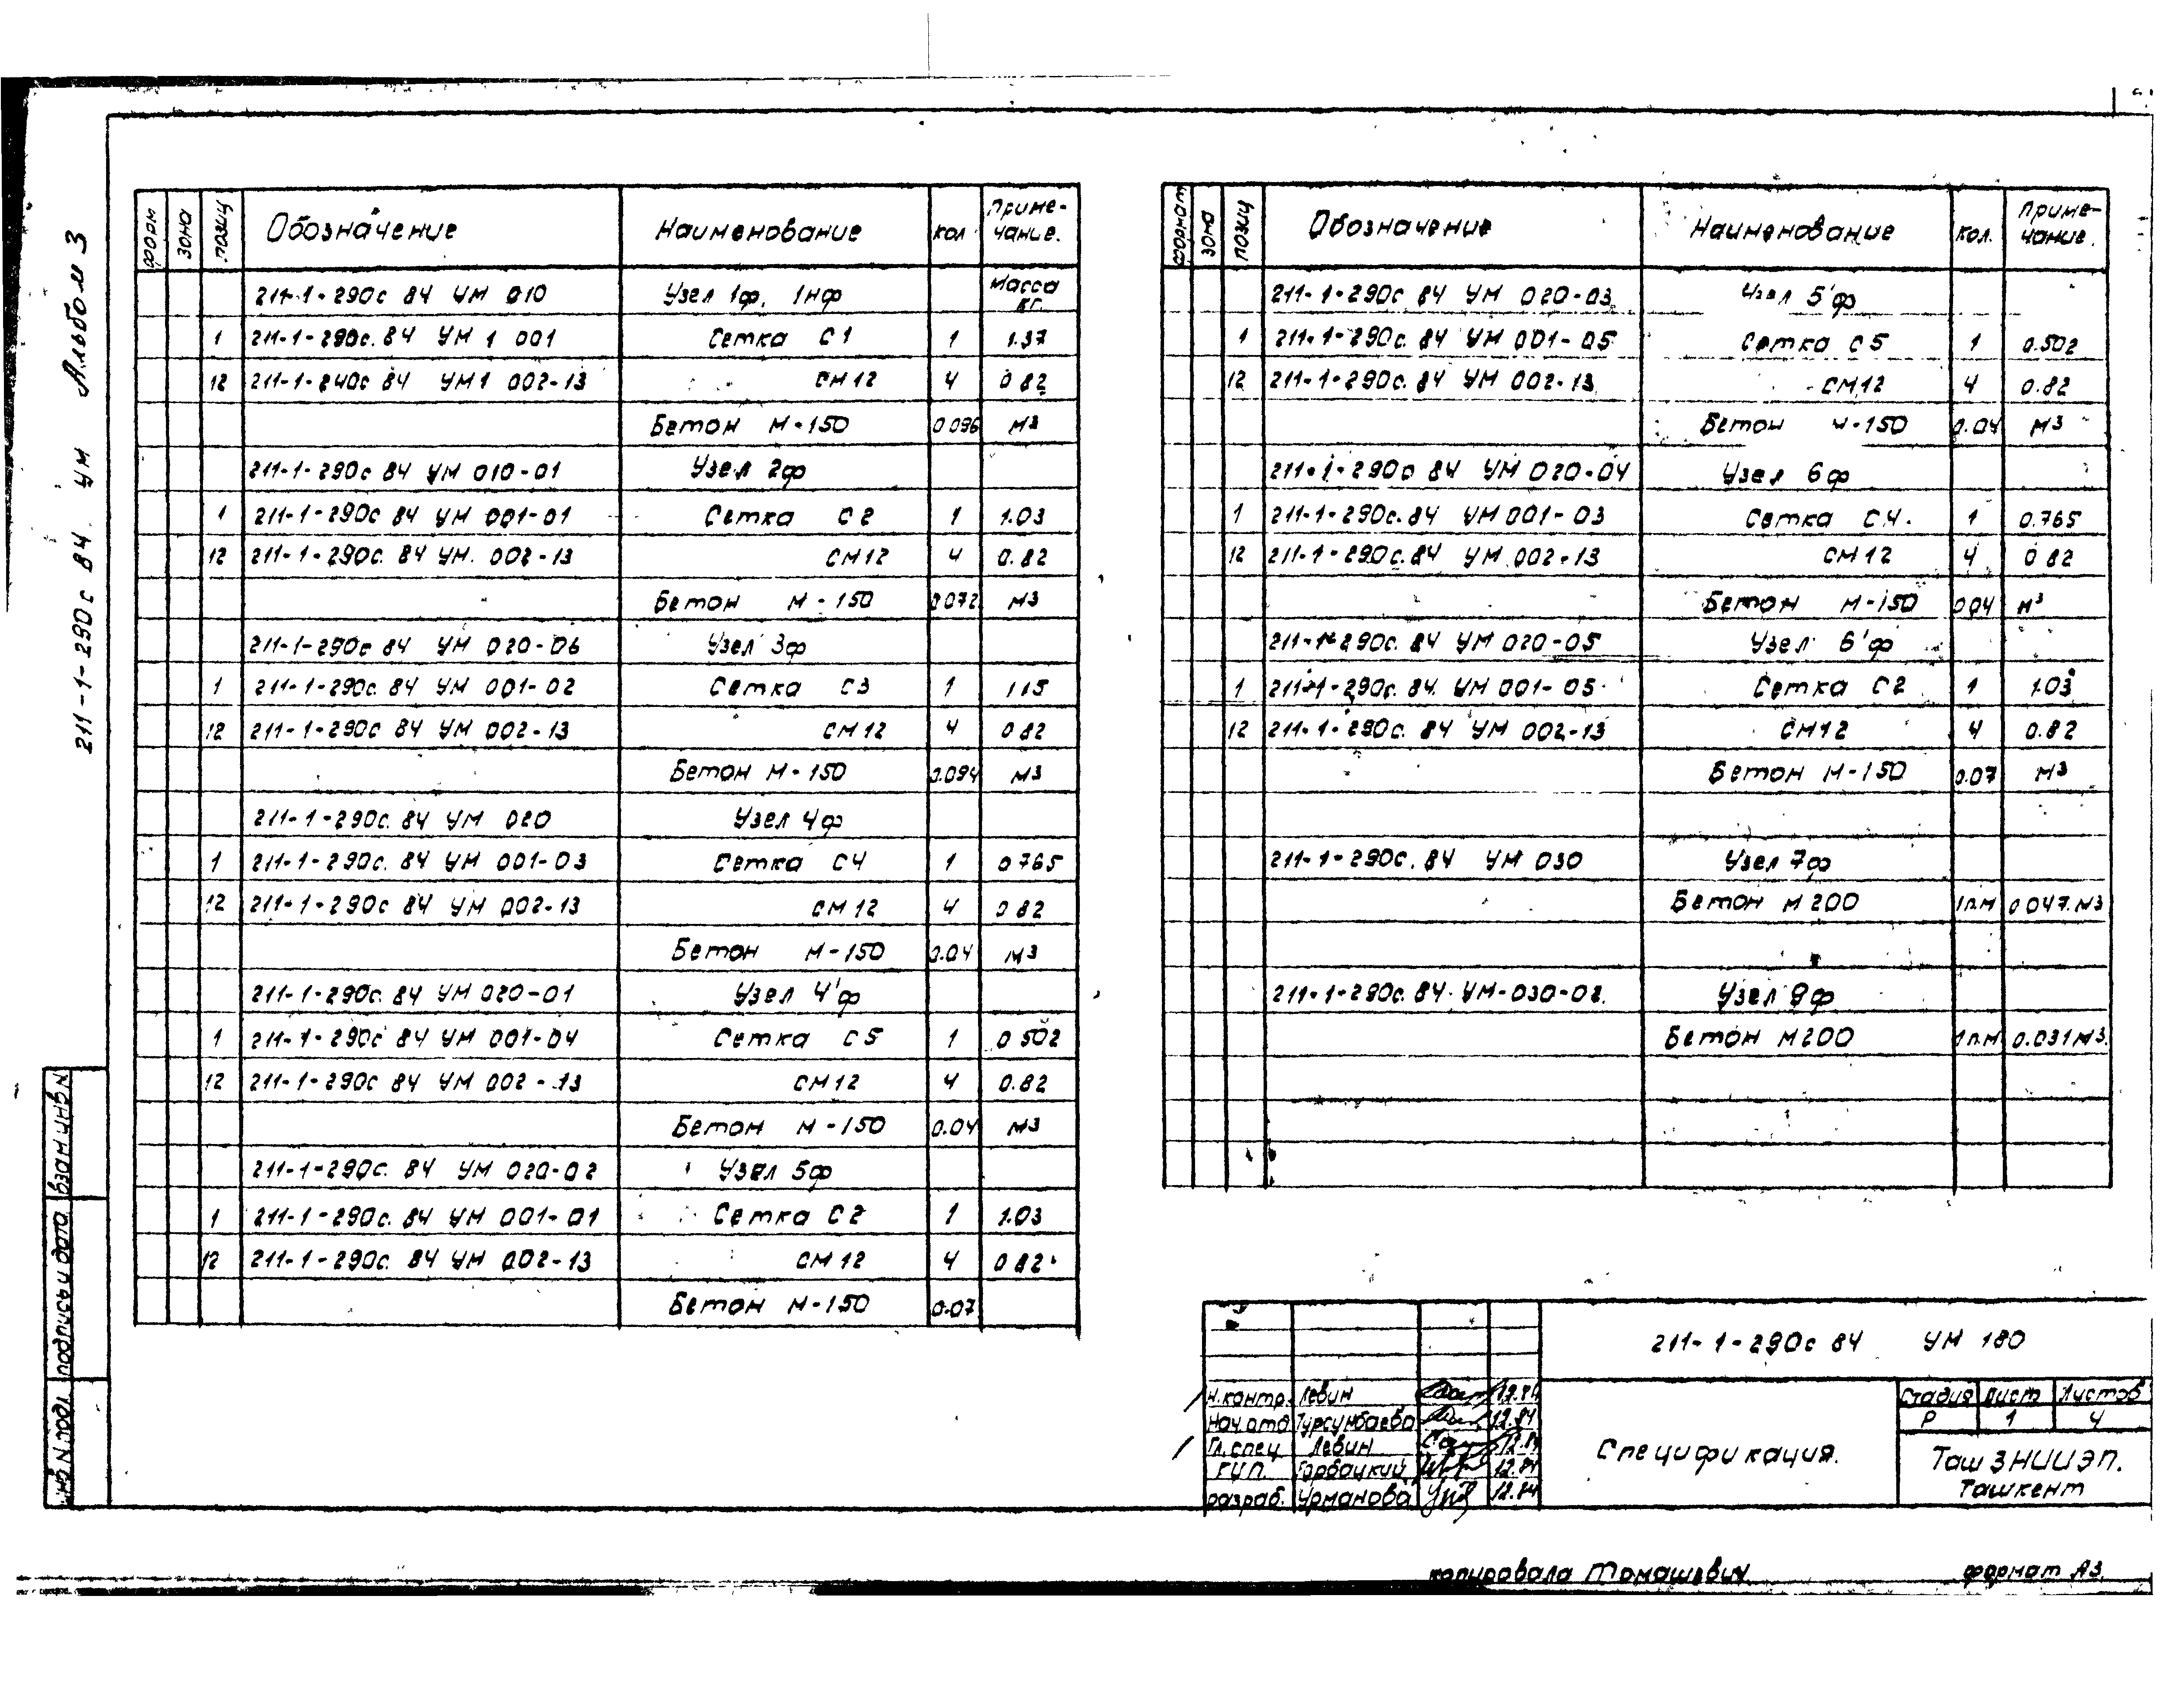 211-1-290с 84 УМ Альбом 3
форм зона позиц Обозначение Наименование кол Приме-
чание.
211-1-290с 84 УМ 010 Узел 1ф, 1нф Масса
кг.
1 211-1-290с. 84 УМ 1 001 Сетка С1 1 1.37
12 211-1-240с 84 УМ1 002-13 СМ12 4 0 82
Бетон М-150 0 096 м3
211-1-290с 84 УМ 010-01 Узел 2ф
1 211-1-290с 84 УМ 001-01 Сетка С2 1 1.03
12 211-1-290с. 84 УМ. 002-13 СМ12 4 0.82
Бетон М-150 0072 м3
211-1-290с 84 УМ 020-06 Узел 3ф
1 211-1-290с. 84 УМ 001-02 Сетка С3 1 1 15
12 211-1-290с 84 УМ 002-13 СМ12 4 0 82
Бетон М-150 0.094 м3
211-1-290с. 84 УМ 020 Узел 4ф
1 211-1-290с. 84 УМ 001-03 Сетка С4 1 0 765
12 211-1-290с 84 УМ 002-13 СМ12 4 0 82
Бетон М-150 0.04 м3
211-1-290с. 84 УМ 020-01 Узел 4'ф
1 211-1-290с 84 УМ 001-04 Сетка С5 1 0 502
12 211-1-290с 84 УМ 002-13 СМ12 4 0.82
Бетон М-150 0.04 м3
211-1-290с. 84 УМ 020-02 Узел 5ф
1 211-1-290с. 84 УМ 001-01 Сетка С2 1 1.03
12 211-1-290с. 84 УМ 002-13 СМ12 4 0 82
Бетон М-150 0.07
формат зона позиц Обозначение Наименование кол. Приме-
чание.
211-1-290с 84 УМ 020-03 Узел 5'ф
1 211-1-290с. 84 УМ 001-05 Сетка С5 1 0.502
12 211-1-290с. 84 УМ 002-13 СМ12 4 0.82
Бетон М-150 0.04 м3
211-1-290с 84 УМ 020-04 Узел 6ф
1 211-1-290с. 84 УМ 001-03 Сетка С4. 1 0.765
12 211-1-290с. 84 УМ 002-13 СМ12 4 0 82
Бетон М-150 004 м3
211-1-290с. 84 УМ 020-05 Узел 6'ф
1 211-1-290с. 84. УМ 001-05 Сетка С2 1 1.03
12 211-1-290с. 84 УМ 002-13 СМ12 4 0.82
Бетон М-150 0.07 м3
211-1-290с. 84 УМ 030 Узел 7ф
Бетон М200 1п.м 0 047.м3
211-1-290с. 84. УМ-030-02. Узел 9ф
Бетон М200 1п.м 0.031м3.
взам инв N
подпись и дата
инв N подл.
211-1-290с 84 УМ 180
Н.контр. Левин 12.84
Нач.отд Турсунбаева 12.84
Гл.спец Левин 12.84
ГИП. Горбацкий 12.84
разраб. Урманова 12.84
Спецификация.
Стадия Лист Листов
Р 1 4
Таш ЗНИИЭП.
Ташкент
копировала Томашевич
формат А3.